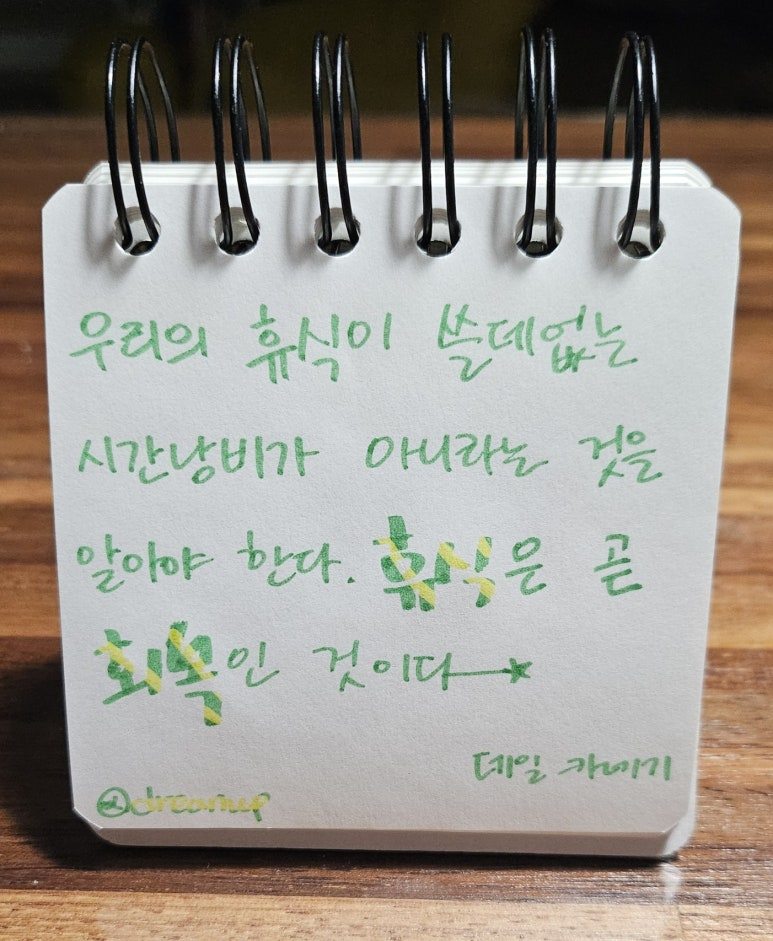 우리의 휴식이 쓸데없는
시간낭비가 아니라는 것을
알아야 한다. 휴식은 곧
회복인 것이다
데일 카네기
dreamup